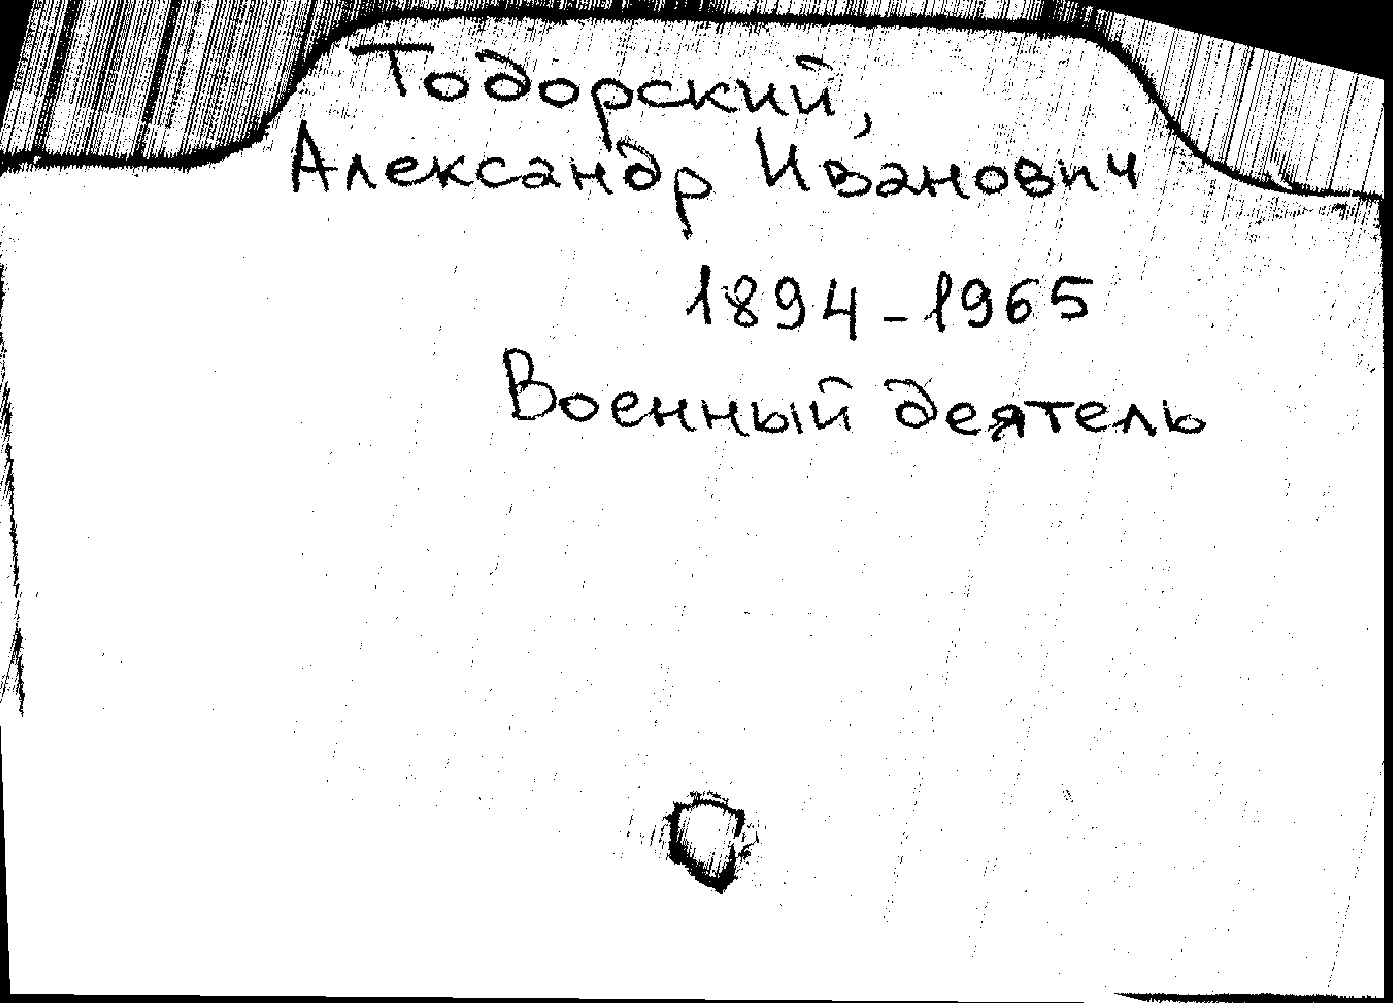 Тодорский,
Александр Иванович
1894-1965
Военный деятель